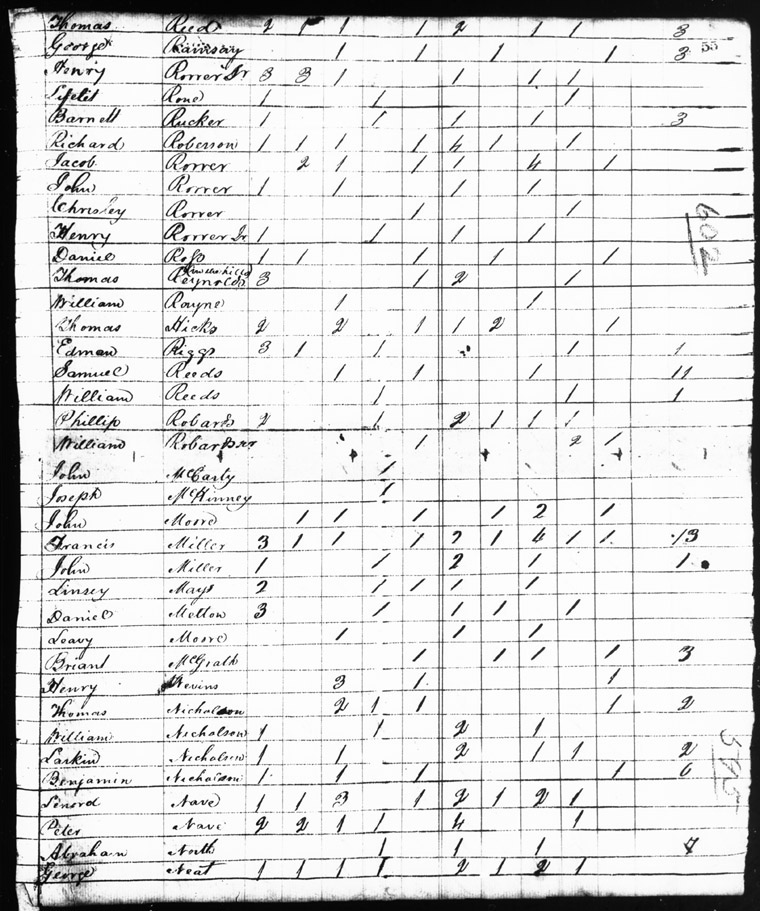 Thomas Reed 2 1 1 1 2 1 1 3
George Ramsay 1 1 1 1 3 53
Henry Rorrer Jr 3 3 1 1 1 1
Rone 1 1 1
Barnett Rucker 1 1 1 1 3
Richard Roberson 1 1 1 1 4 1 1
Jacob Rorrer 2 1 1 1 4 1
John Rorrer 1 1 1 1
Chrisley Rorrer 1 1
Henry Rorrer Jr 1 1 1 1
602
Daniel Ross 1 1 1 1 1
Thomas Reynolds 3 1 2 1
William Rayne 1 1
Thomas Hicks 2 2 1 1 2 1
Edman Riggs 3 1 1 1 1
Samuel Reeds 1 1 1 11
William Reeds 1 1 1
Phillip Robards 2 1 2 1 1 1
William Robards 1 2 1
John McCarty 1
Joseph McKinney 1
John Moore 1 1 1 1 2 1
Francis Miller 3 1 1 1 2 1 4 1 1 13
John Miller 1 1 2 1 1
Linsey Mays 2 1 1 1 1
Daniel Melton 3 1 1 1 1
Leavy Moore 1 1 1
Briant McGrath 1 1 1 1 3
Henry Nevins 3 1 1
Thomas Nicholson 2 1 1 1 2
William Nicholson 1 1 2 1
Larkin Nicholson 1 1 2 1 1 2
Benjamin Nicholson 1 1 1 1 6
595
Lenord Nave 1 1 3 1 2 1 2 1
Peter Nave 2 2 1 1 4 1
Abraham North 1 1 1 7
George Neat 1 1 1 1 2 1 2 1